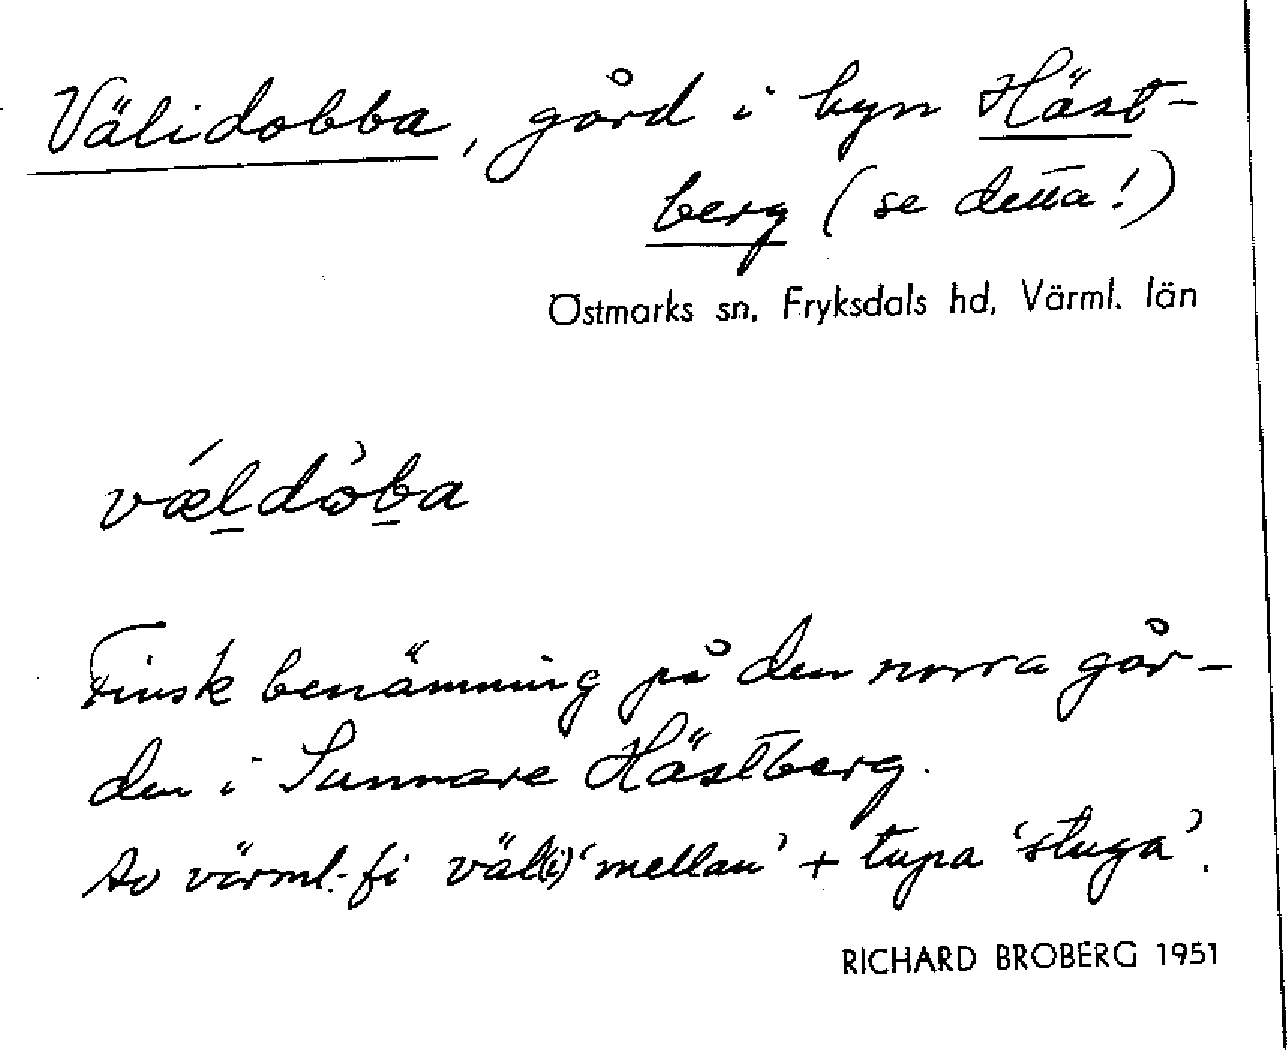 Välidobba, gård i byn Häst-
berg (se detta!)
Östmarks sn, Fryksdals hd, Värml. län
vǽldòba
Finsk benämning på den norra går-
den i Sunnare Hästberg.
Av värml.-fi väl(i) 'mellan' + tupa 'stuga'.
RICHARD BROBERG 1951